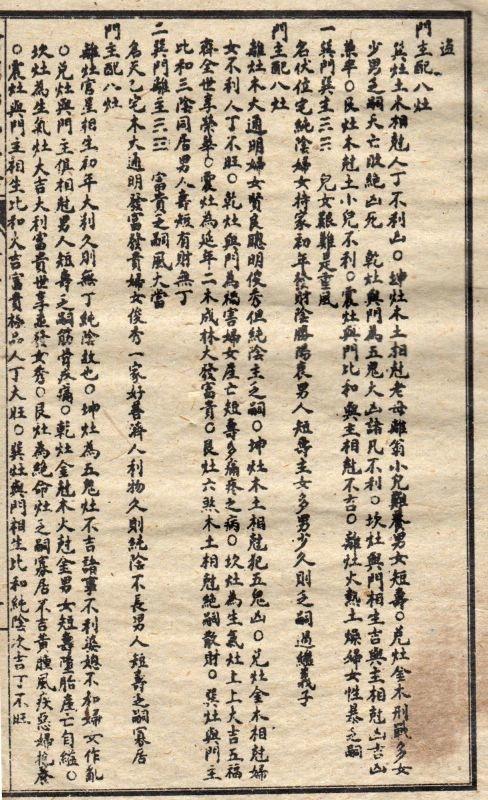 盜
門主配八灶
巽灶土木相尅人丁不利凶○坤灶木土相尅老母離翁小兒難養男女短壽○兌灶金木刑戰多女
少男乏嗣夭亡敗絕凶死　乾灶與門為五鬼大凶諸凡不利○坎灶與門相生吉與主相尅凶吉凶
兼半○艮灶木尅土小兒不利○震灶與門比和與主相尅不吉○離灶火熱土燥婦女性暴乏嗣
一巽門巽主☴☴　兒女艱難是重風
名伏位宅純陰婦女持家初年發財陰勝陽衰男人短壽主女多男少久則乏嗣過繼義子
門主配八灶
離灶木火通明婦女賢良聰明俊秀但純陰主乏嗣○坤灶木土相尅犯五鬼凶○兌灶金木相尅婦
女不利人丁不旺○乾灶與門為禍害婦女産亡短壽多痛疼之病○坎灶為生氣灶上上大吉五福
齊全世享榮華○震灶為延年二木成林大發富貴○艮灶六煞木土相尅絕嗣散財○巽灶與門主
比和三陰同居男人壽短有財無丁
二巽門離主☴☲　富貴乏嗣風火當
名天乙宅木火通明發富發貴婦女俊秀一家好善濟人利物久則純陰不長男人短壽乏嗣寡居
門主配八灶
離灶宮星相生初年大利久則無丁純陰故也○坤灶為五鬼灶不吉諸事不利婆媳不和婦女作亂
○兌灶與門主俱相尅男人短壽乏嗣筋骨疼痛○乾灶金尅木火尅金男女短壽墮胎産亡自縊○
坎灶為生氣灶大吉大利富貴世享丁發女秀○艮灶為絕命灶乏嗣寡居不吉黃腫風疾惡婦
○震灶與門主相生比和大吉富貴極品人丁大旺○巽灶與門相生比和純陰次吉丁不旺